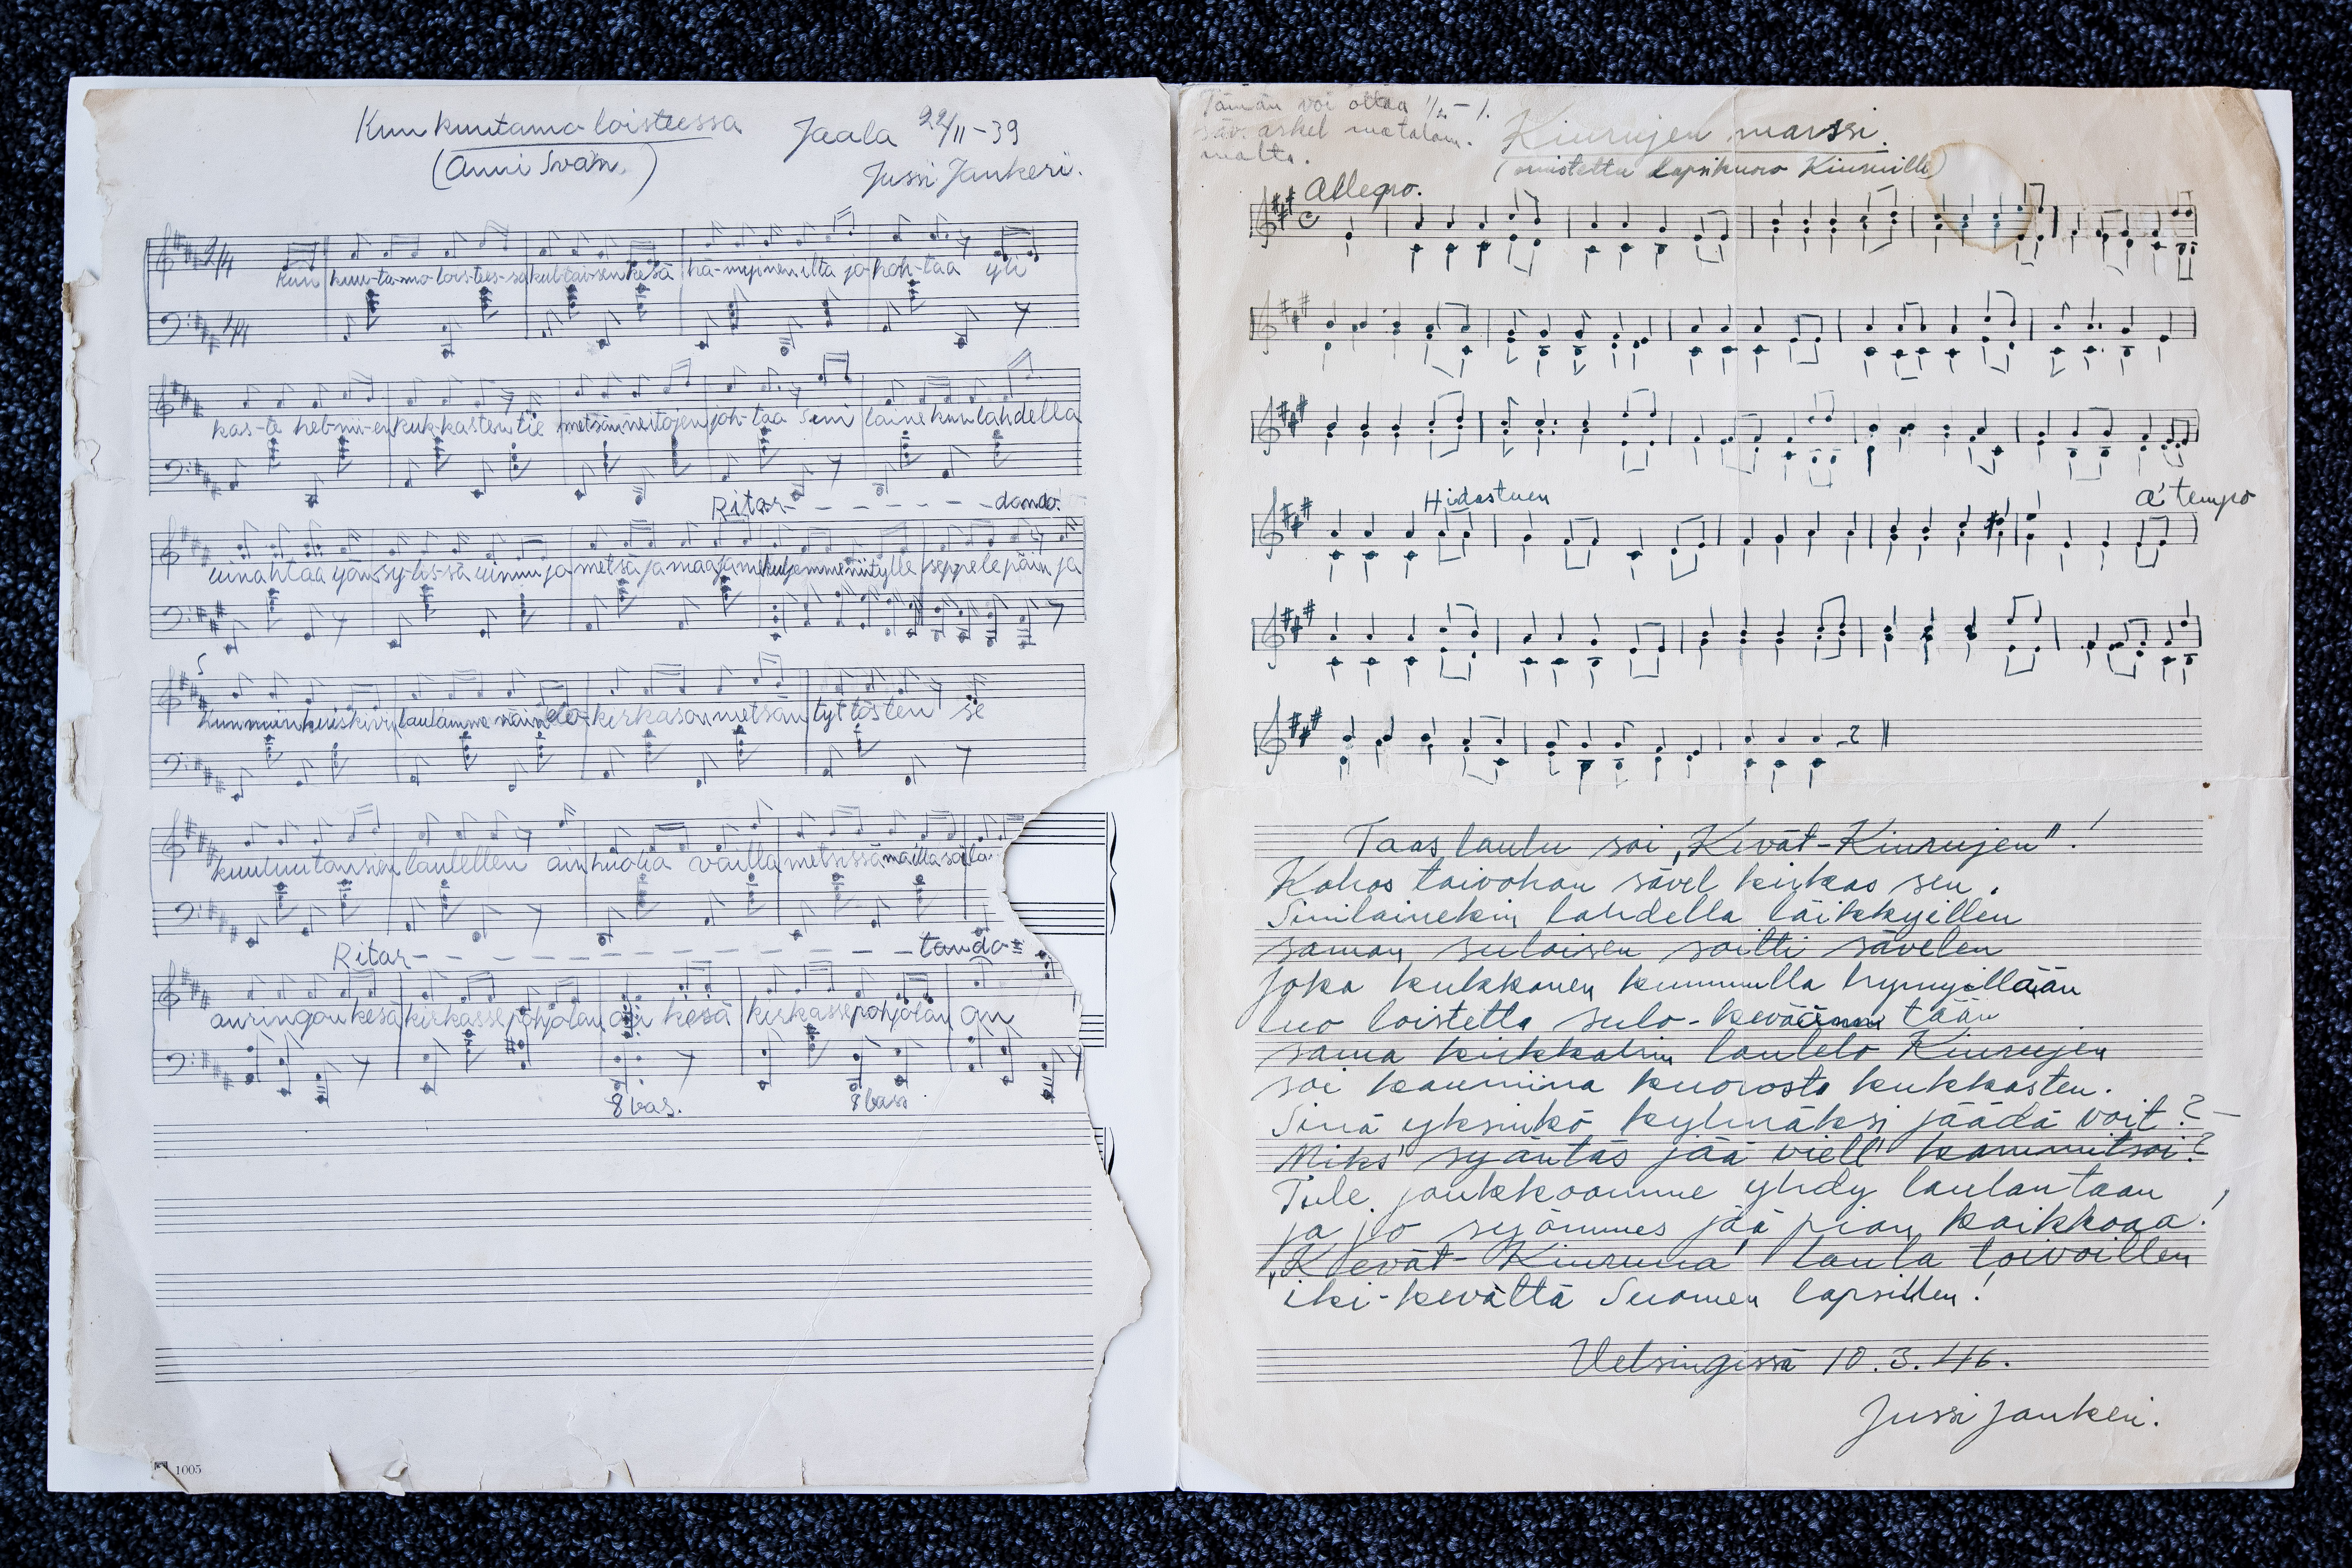 Kun kuutamo loisteessa
(Anni Swan.)
Jaala 22/11-39
Jussi Jankeri.
2/4
Kun kuu-ta-mo-lois-tees-sa kul-tai-sen kesä hä-myinen ilta jo hoh-taa yli
kas-te hel-mi-en kuk-kasten tie metsän neitojen joh-taa Sini laine kun lahdella
Ritar- - - - - - -dando.
uinahtaa yön sy-lis-sä uinuu ja metsä ja maa ja me kuljemme niitylle seppele päin ja
kun laulamme näin elo- kirkas on metsän tyttösten se
kuuluu tanssien laulellen ain huolia vailla metsissä mailla
Ritar- - - - - - - -tando
auringon kesä kirkasse pohjolan on kesä kirkasse pohjolan on
8 bas. 8 bas
1005
Tämän voi ottaa 1/2 - 1.
säv. askel matalam-
malta.
Kiurujen marssi.
(omistettu Lapsikuoro Kiuruille)
Allegro.
Hidastuen
a' tempo
Taas laulu soi „Kevät-Kiurujen"!
Kohos taivohon sävel kirkas sen.
Sinilainekin lahdella läikkyillen
saman suloisen soitti sävelen
Joka kukkanen kummulla hymyillään
luo loistetta sulo-keväänni tään
sama kirkkahin laulelo Kiurujen
soi kauniina kuorosta kukkasten.
Sinä yksinkö kylmäksi jäädä voit? -
Miks' syäntäs jää viell' kammitsoi?
Tule joukkoomme yhdy laulantaan
ja jo syömmes jää pian kaikkoaa!
„Kevät-Kiuruna" laula toivoillen
iki-kevättä Suomen lapsillen!
Helsingissä 10.3.46.
Jussi Jankeri.